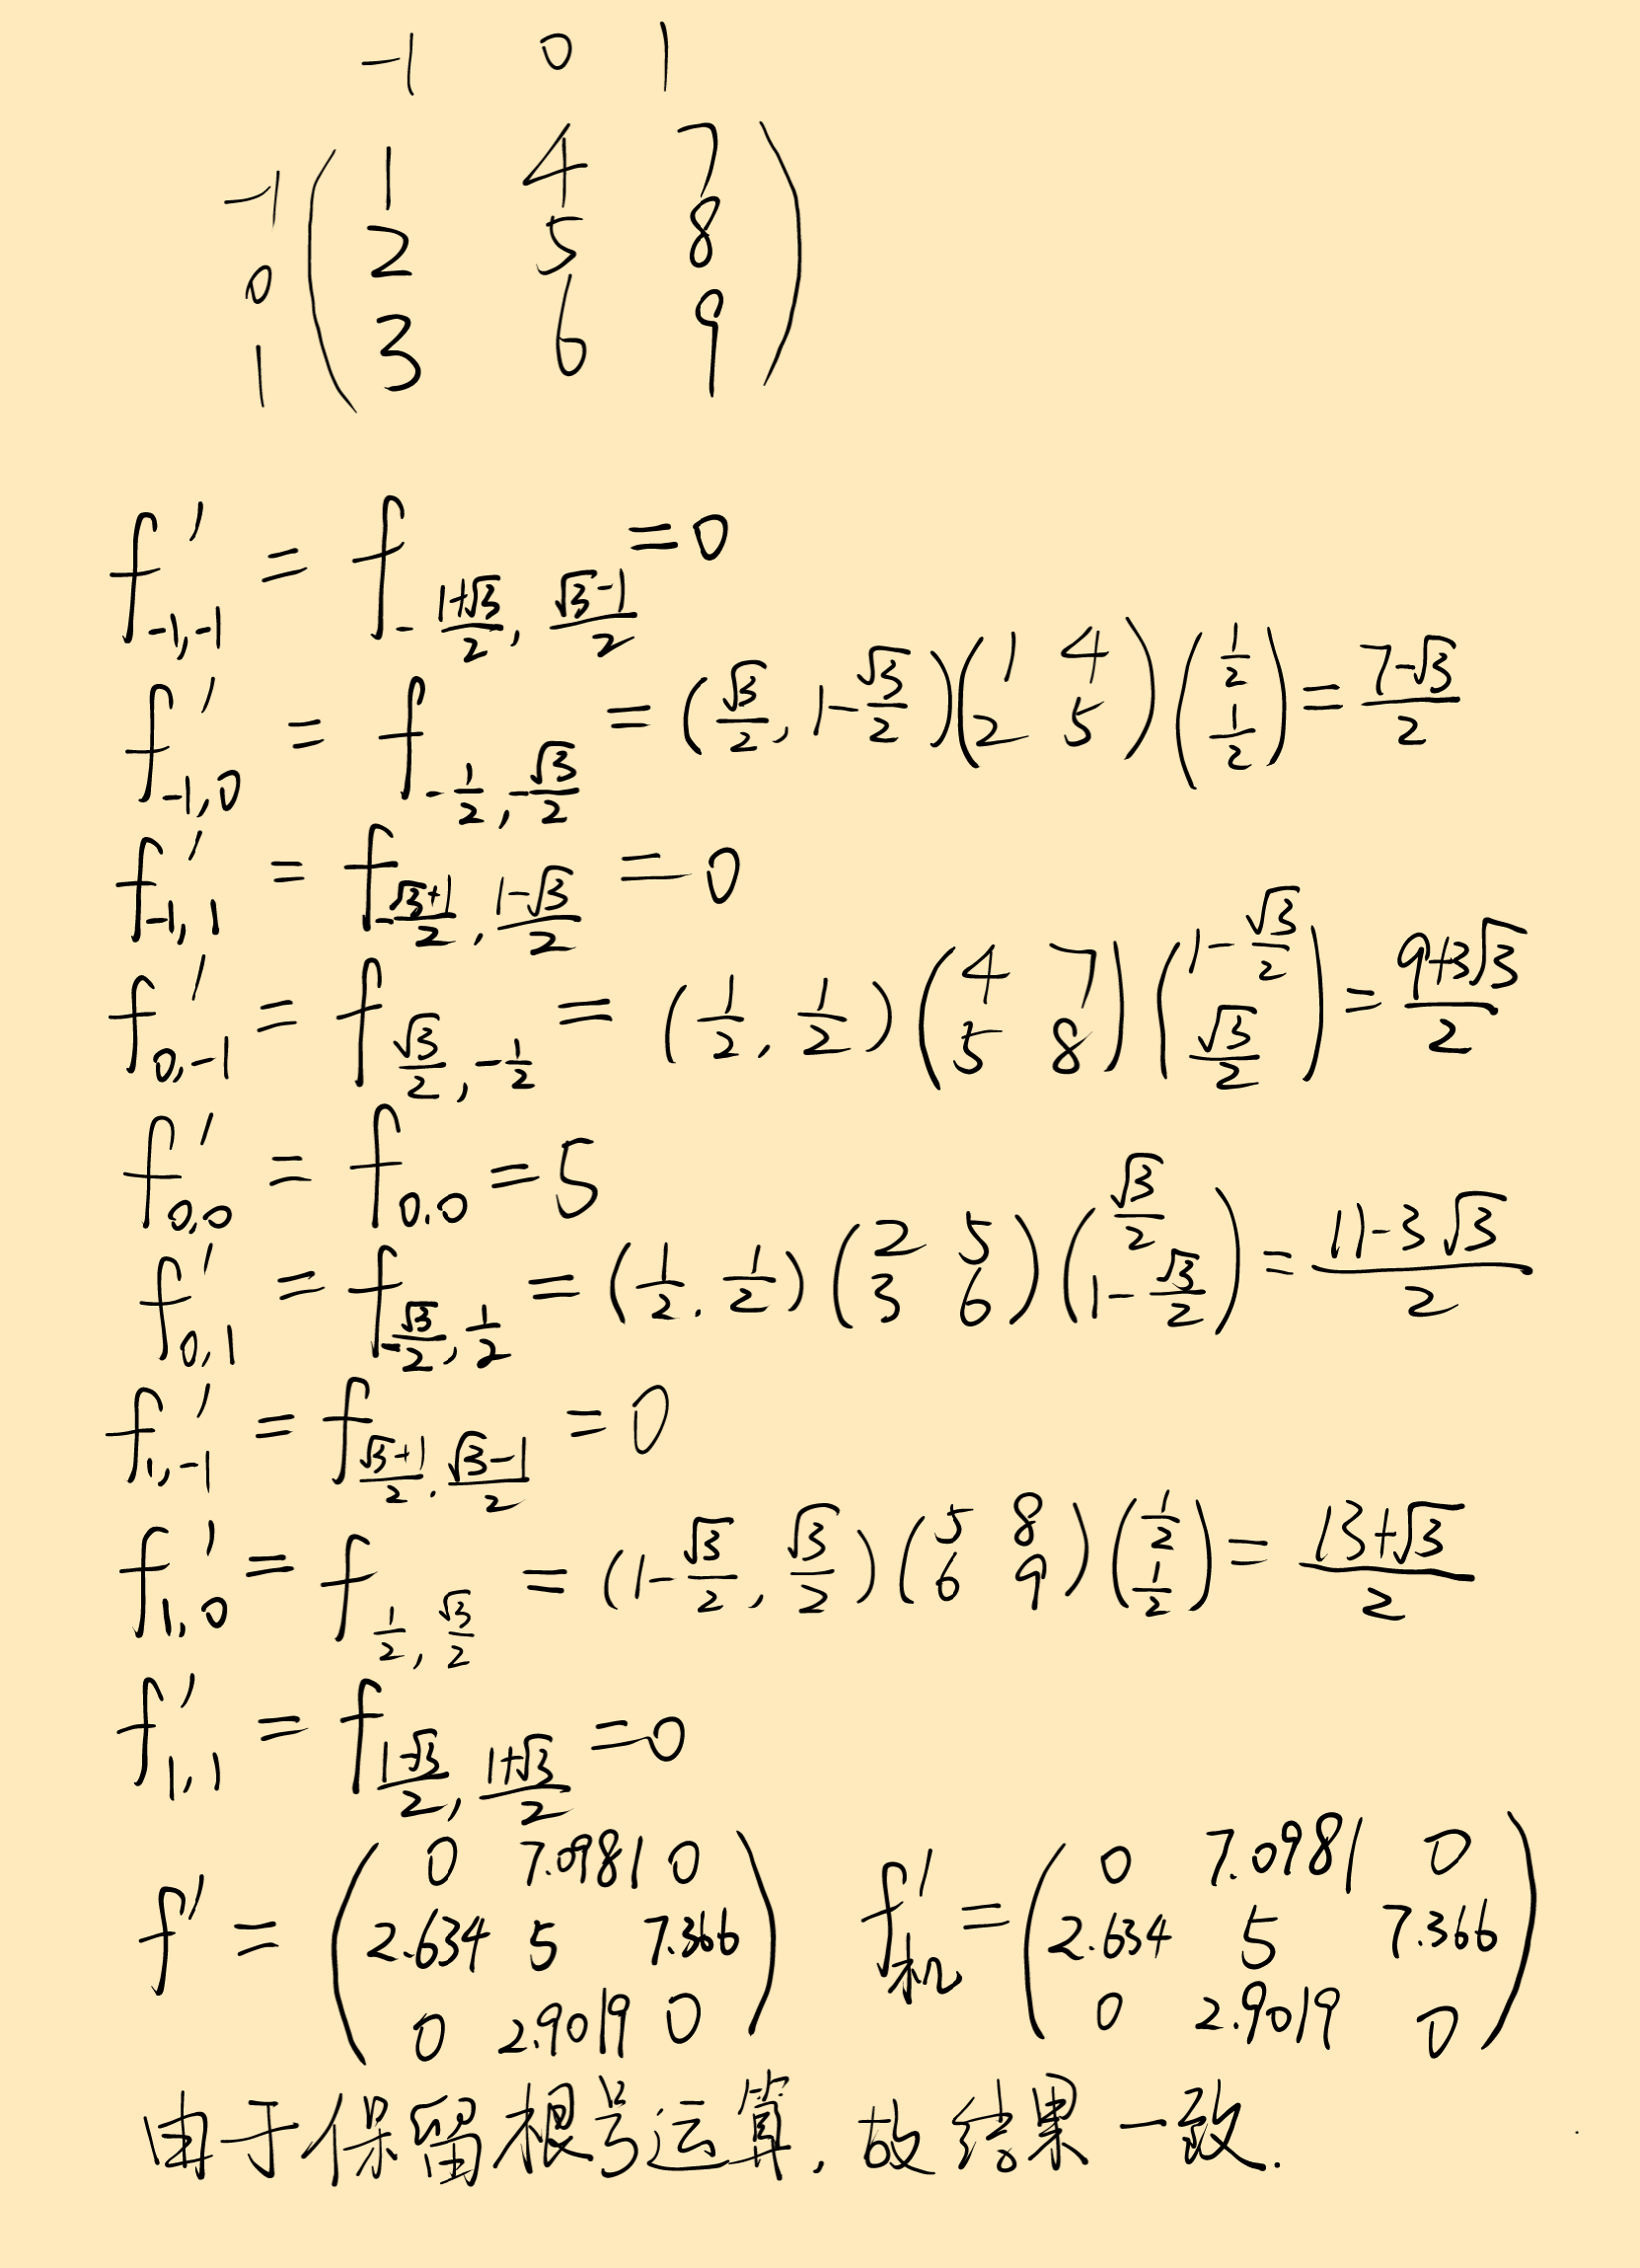 -1 0 1
-1 ( 1 4 7 )
0 ( 2 5 8 )
1 ( 3 6 9 )
f'_{-1,-1} = f_{-\frac{1+√3}{2}, \frac{√3-1}{2}} = 0
f'_{-1,0} = f_{-\frac{1}{2}, -\frac{√3}{2}} = (\frac{√3}{2}, 1-\frac{√3}{2}) (1 4; 2 5) (\frac{1}{2}; \frac{1}{2}) = \frac{7-√3}{2}
f'_{-1,1} = f_{-\frac{√3+1}{2}, \frac{1-√3}{2}} = 0
f'_{0,-1} = f_{\frac{√3}{2}, -\frac{1}{2}} = (\frac{1}{2}, \frac{1}{2}) (4 7; 5 8) (1-\frac{√3}{2}; \frac{√3}{2}) = \frac{9+3√3}{2}
f'_{0,0} = f_{0,0} = 5
f'_{0,1} = f_{-\frac{√3}{2}, \frac{1}{2}} = (\frac{1}{2}, \frac{1}{2}) (2 5; 3 6) (\frac{√3}{2}; 1-\frac{√3}{2}) = \frac{11-3√3}{2}
f'_{1,-1} = f_{\frac{√3+1}{2}, \frac{√3-1}{2}} = 0
f'_{1,0} = f_{\frac{1}{2}, \frac{√3}{2}} = (1-\frac{√3}{2}, \frac{√3}{2}) (5 8; 6 9) (\frac{1}{2}; \frac{1}{2}) = \frac{13+√3}{2}
f'_{1,1} = f_{\frac{1-√3}{2}, \frac{1+√3}{2}} = 0
f' = (0 7.0981 0; 2.634 5 7.366; 0 2.9019 0) f'_机 = (0 7.0981 0; 2.634 5 7.366; 0 2.9019 0)
由于保留根号运算,故结果一致.